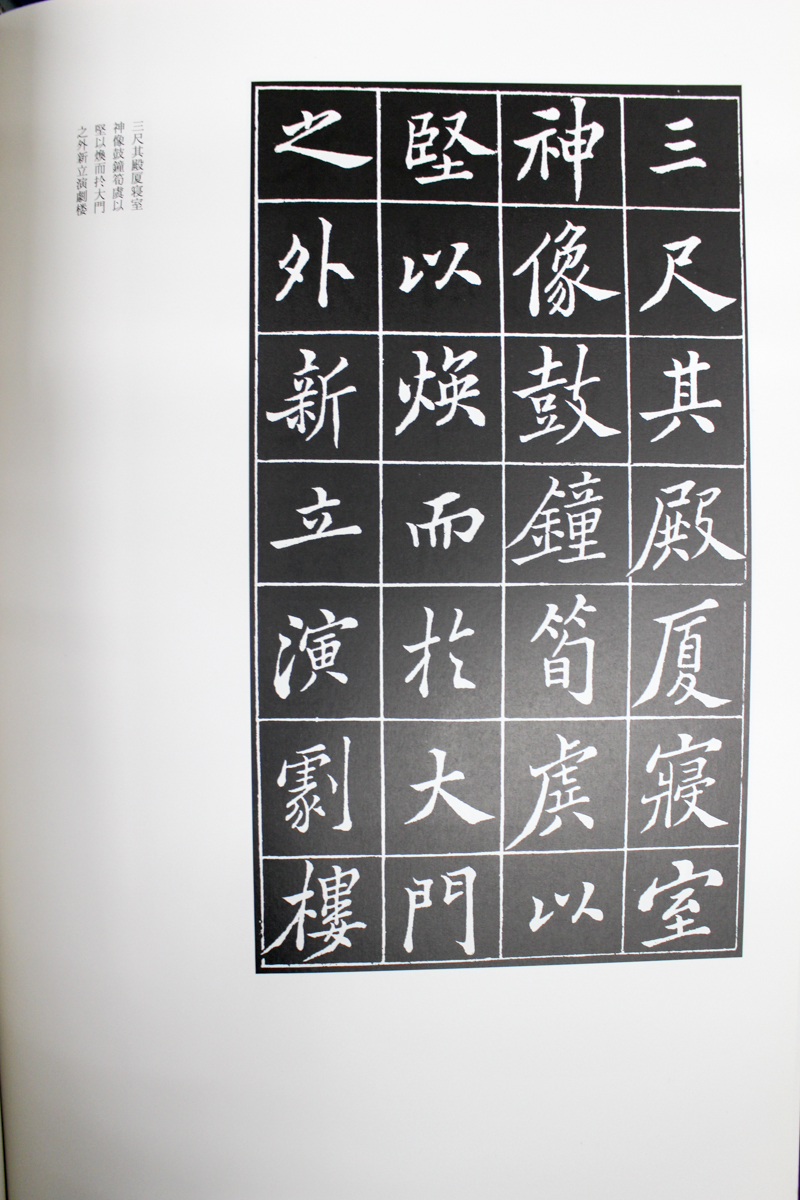 三尺其殿厦寢室
神像鼓鐘筍虡以
堅以煥而扵大門
之外新立演劇樓
三尺其殿厦寝室
神像鼓鐘筍虡以
堅以煥而扵大門
之外新立演劇楼